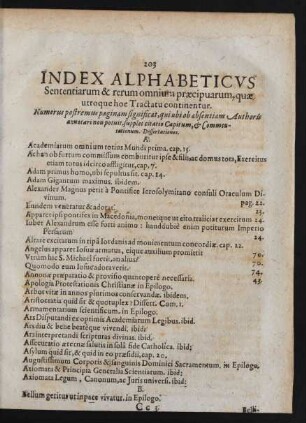 203
INDEX ALPHABETICVS
Sententiarum & rerum omnium præcipuarum, quæ
utroque hoc Tractatu continentur.
Numerus postremus paginam significat, qui ubi ob absentiam Authoris
annotari non potuit, supplet citatio Capitum, & Commen-
tationum. Dissertationes.
A.
Academiarum omnium totius Mundi prima, cap. 15.
Achas ob furtum commissum comburitur ipse & filii ac domus tota, Exercitus
etiam totus ideirco affligitur, cap. 7.
Adam primus humo, ubi sepultus sit. cap. 14.
Adam Gigantum maximus, ibidem.
Alexander Magnus petit à Pontifice Ierosolymitano consuli Oraculum Di-
vinum.
pag. 22.
Eundem veneratur & adorat.
23.
Apparet ipsi pontifex in Macedonia, monetque ut cito traiiciat exercitum 24.
Iubet Alexandrum esse forti animo: handdubiè enim potiturum Imperio
Persarum
24.
Altare excitarum in ripa Iordanis ad monumentum concordiæ. cap. 12.
Angelus apparet Iosue armatus, eique auxilium promittit
70.
Vtrùm hic S. Michael fuerit, an alius?
70.
Quomodo eum Iosue adoraverit.
74.
Annonæ præparatio & provisio quinopere necessaria.
43.
Apologia Protestationis Christianæ in Epilogo.
Arbusvitæ in annos plurimos conservandæ, ibidem.
Aristocratia quid sit & quotuplex? Dissert. Com. 1.
Armamentarium scientificum. in Epilogo.
Ars Disputandi ex optimis Academiarum Legibus. ibid.
Ars diu & bene beateque vivendi. ibid;
Ars interpretandi scripturas divinas. ibid.
Assecuratio æternæ salutis in solâ fide Catholica. ibid;
Asylum quid sit, & quid in eo præsidii, cap. 20.
Augustissimum Corporis & sanguinis Dominici Sacramentum. in Epilogo.
Axiomata & Principia Generalia Scientiarum. ibid;
Axiomata Legum, Canonum, ac Juris universi. ibid;
B.
Bellum geritur ut in pace vivatur. in Epilogo.
Cc 5
Belli-